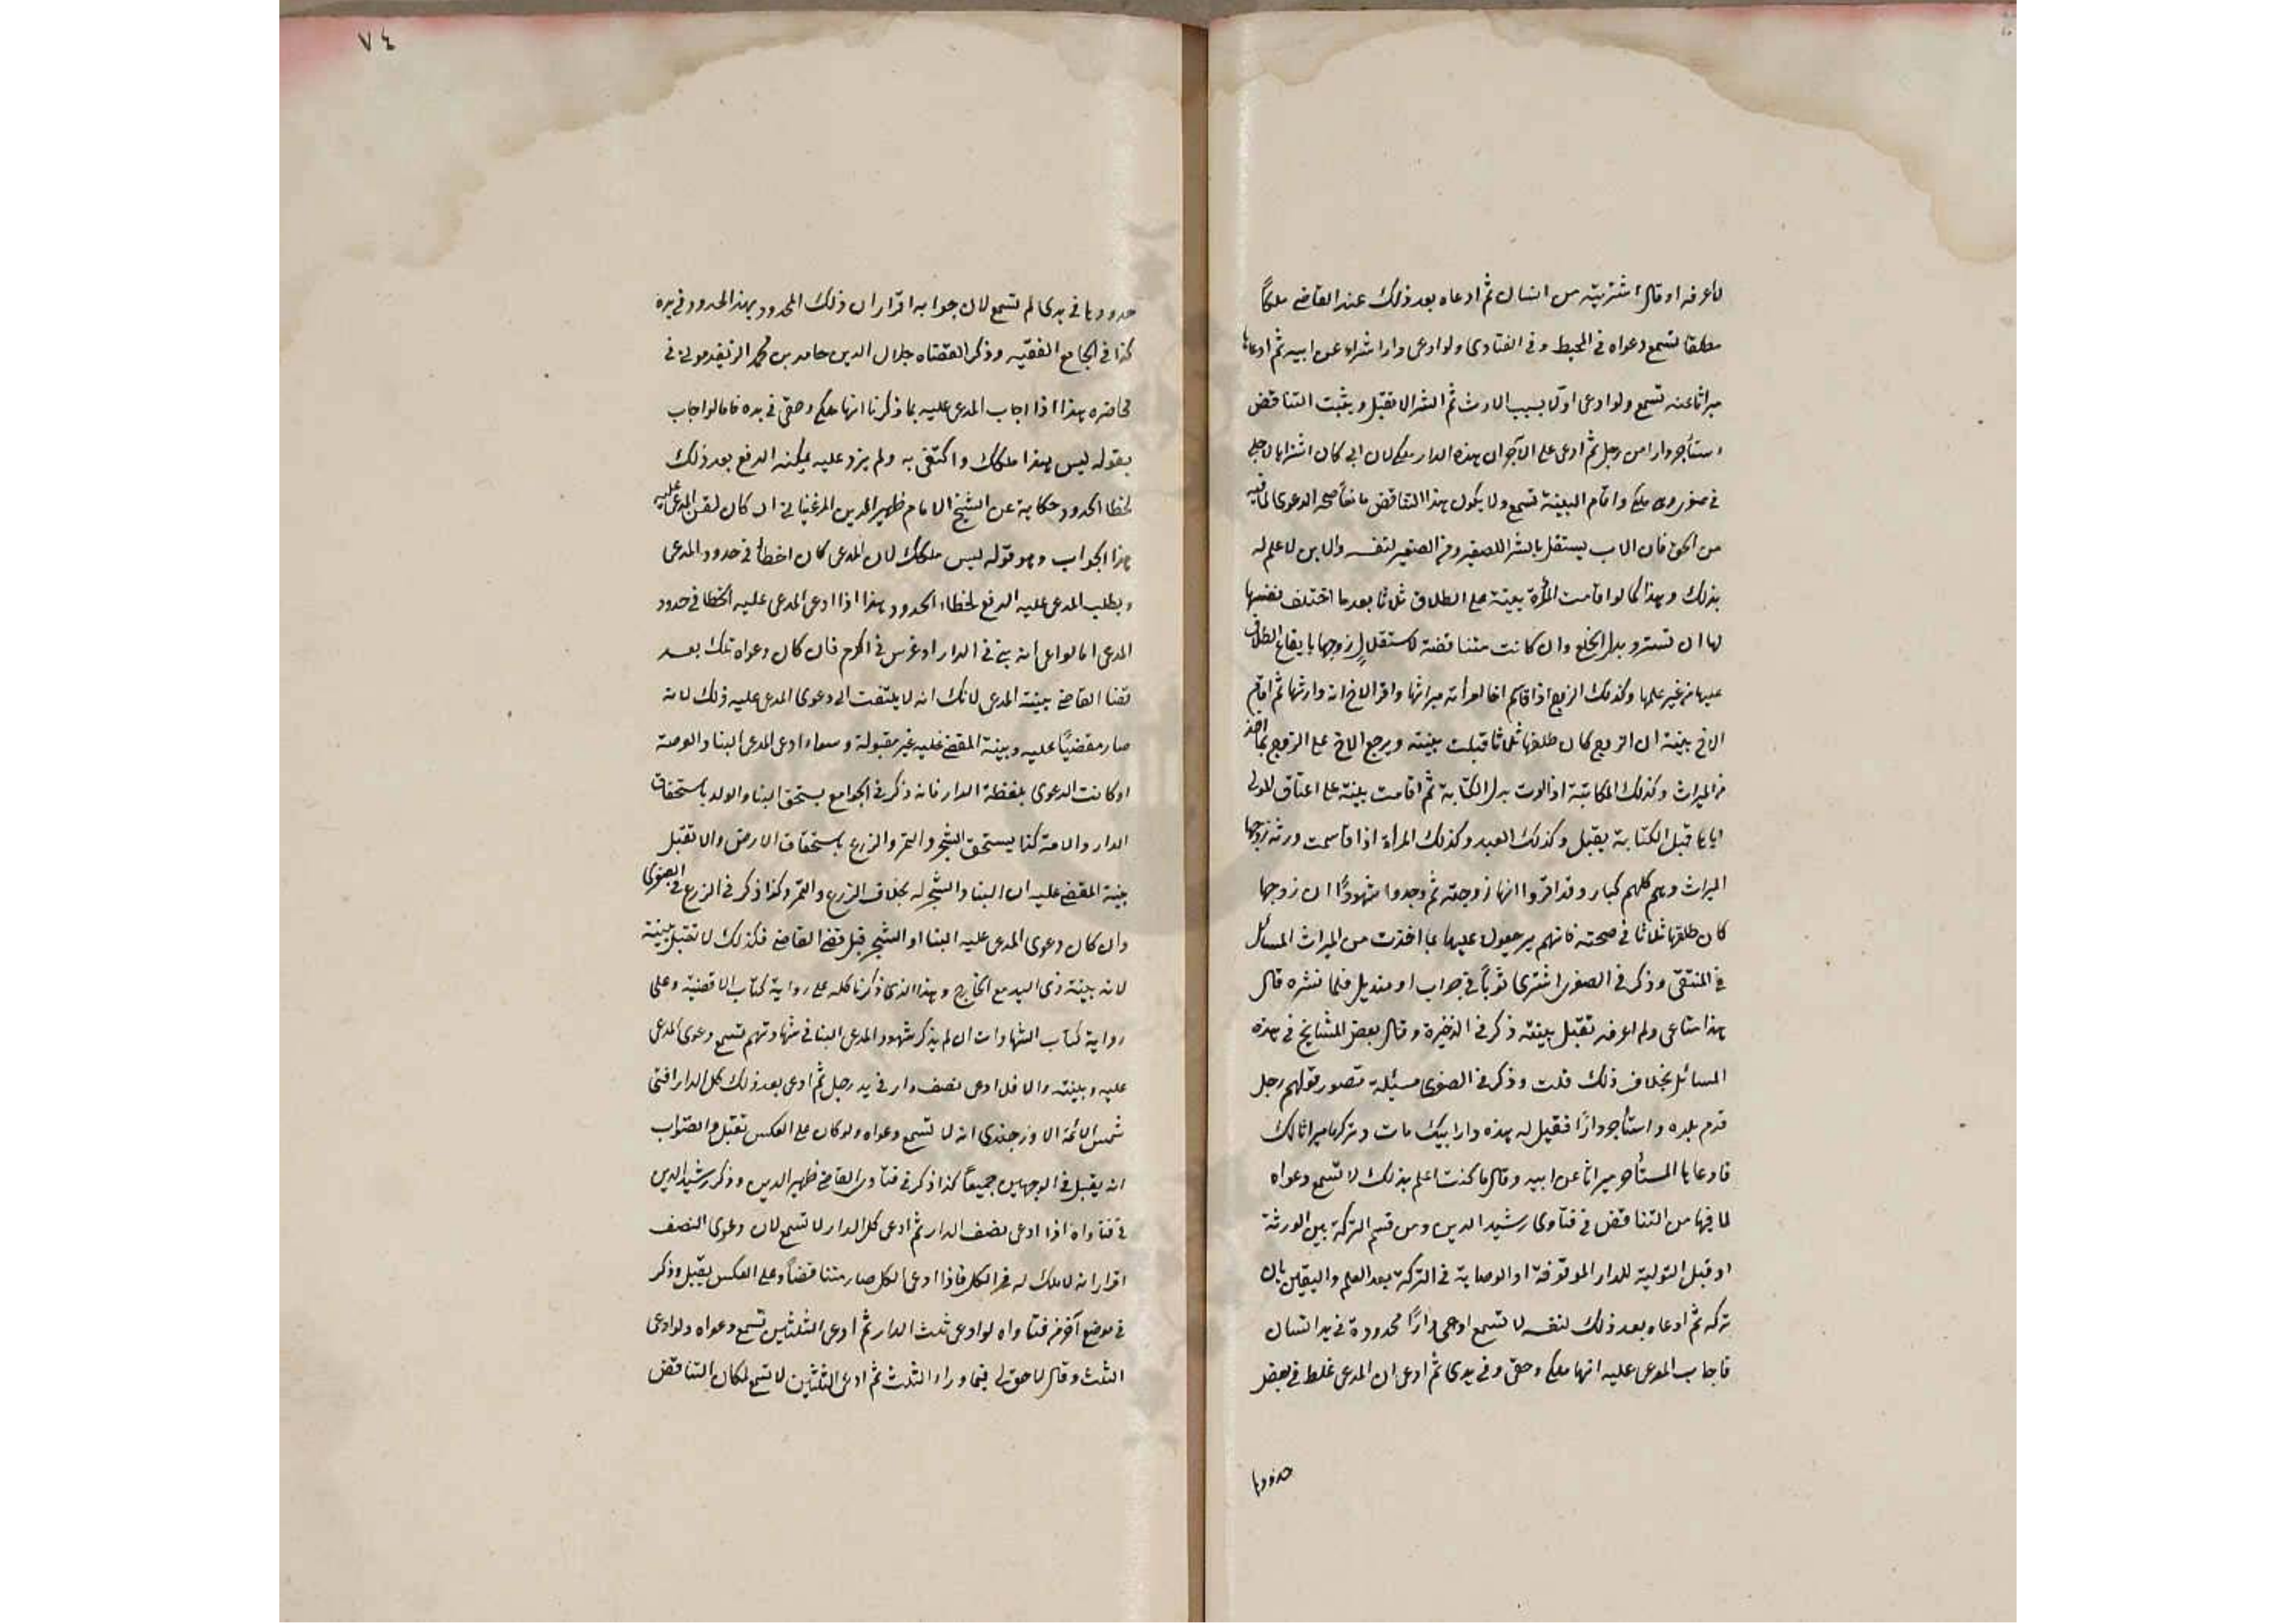 لا اعرفه او قال اشتريته من انسان ثم ادعاه بعد ذلك عند القاضى ملكاً
مطلقا تسمع دعواه فى المحيط وفى الفتاوى ولو ادعى دارا شراء عن ابيه ثم ادعاها
ميراثا عنه تسمع ولو ادعى اولا بسبب الارث ثم الشرا لا تقبل ويثبت التناقض
استأجر دارا من رجل ثم ادعى على الآجر ان هذه الدار ملكى لان ابى كان اشتراها لاجلى
فى صغرى وهى ملكى واقام البينة تسمع ولا يكون هذا التناقض مانعاً صحة الدعوى لما فيه
من الخفى فان الاب يستقل بالشرا للصغير ومن الصغير لنفسه والابن لا علم له
بذلك وهذا كما لو اقامت المرأة بينة على الطلاق ثلاثا بعدما اختلعت نفسها
لها ان تسترد بدل الخلع وان كانت متناقضة لاستقلال زوجها بايقاع الطلاق
عليها من غير علمها وكذلك الزوج اذا قاسم اخا امرأته ميراثها واقر الاخ انه وارثها ثم اقام
الاخ بينة ان الزوج كان طلقها ثلاثا قبلت بينته ويرجع الاخ على الزوج بما اخذ
من الميراث وكذلك المكاتبة اذا ادت بدل الكتابة ثم اقامت بينة على اعتاق المولى
اياها قبل الكتابة يقبل وكذلك العبد وكذلك المرأة اذا قاسمت ورثة زوجها
الميراث وهم كلهم كبار وقد اقروا انها زوجته ثم وجدوا شهودًا ان زوجها
كان طلقها ثلاثا فى صحته فانهم يرجعون عليها بما اخذت من الميراث المسائل
فى المنتقى وذكر فى الصغرى اشترى ثوباً فى جراب او منديل فلما نشره قال
هذا متاعى ولم اعرفه تقبل بينته ذكر فى الذخيرة وقال بعض المشايخ فى هذه
المسائل بخلاف ذلك قلت وذكر فى الصغرى مسئلة تصور قولهم رجل
قدم بلدة واستأجر دارًا فقيل له هذه دار ابيك مات وتركها ميراثا لك
فادعاها المستأجر ميراثا عن ابيه وقال ما كنت اعلم بذلك لا تسمع دعواه
لما فيها من التناقض فى فتاوى رشيد الدين ومن قسم التركة بين الورثة
او قبل التولية للدار الموقوفة او الوصاية فى التركة بعد العلم واليقين بان
تركه ثم ادعاه بعد ذلك لنفسه لا تسمع ادعى دارًا محدودة فى يد انسان
فاجاب المدعى عليه انها ملكى وحقى وفى يدى ثم ادعى ان المدعى غلط فى بعض
حدودها
٧٤
حدودها فى يدى لم تسمع لان جوابه اقرار ان ذلك المحدود بهذا الحدود فى يده
كذا فى الجامع الفقيه وذكر القضاه جلال الدين حامد بن محمد الزيغدمونى فى
محاضره هذا اذا اجاب المدعى عليه بما ذكرنا انها ملكى وحقى فى يده فاما لو اجاب
بقوله ليس هذا ملكك واكتفى به ولم يزد عليه يمكنه الدفع بعد ذلك
لخطا الحدود حكاية عن الشيخ الامام ظهير الدين المرغينانى ان كان لقن المدعى عليه
هذا الجواب وهو قوله ليس ملكك لان المدعى كان اخطأ فى حدود المدعى
ويطلب المدعى عليه الدفع لخطاء الحدود هذا اذا ادعى المدعى عليه الخطا فى حدود
المدعى اما لو اعى أنه بنى فى الدار او غرس فى الكرم فان كان دعواه تلك بعد
قضا القاضى ببينة المدعى لا شك انه لا يلتفت الى دعوى المدعى عليه ذلك لانه
صار مقضيًا عليه وبينة المقضى عليه غير مقبولة وسواء ادعى المدعى البنا والعرصة
او كانت الدعوى بلفظة الدار فانه ذكر فى الجوامع يستحق البنا والولد باستحقاق
الدار والامة كما يستحق الشجر والثمر والزرع باستحقاق الارض ولا تقبل
بينة المقضى عليه ان البنا والشجر له بخلاف الزرع والثمر وكذا ذكر فى الزرع فى الصغرى
وان كان دعوى المدعى عليه البنا او الشجر قبل قضى القاضى فكذلك لا تقبل بينته
لانه بينة ذى اليد مع الخارج وهذا الذى ذكرنا كله على رواية كتاب الاقضية وعلى
رواية كتاب الشهادات ان لم يذكر شهود المدعى البنا فى شهادتهم تسمع دعوى المدعى
عليه وبينته والا فلا ادعى نصف دار فى يد رجل ثم ادعى بعد ذلك كل الدار افتى
شمس الائمة الاوزجندى انه لا تسمع دعواه ولو كان على العكس تقبل والصواب
انه يقبل فى الوجهين جميعاً كذا ذكر فى فتاوى القاضى ظهير الدين وذكر رشيد الدين
فى فتاواه اذا ادعى نصف الدار ثم ادعى كل الدار لا تسمع لان دعوى النصف
اقرار انه لا ملك له فى الكل فاذا ادعى الكل صار متناقضاً وعلى العكس يقبل وذكر
فى موضع آخر من فتاواه لو ادعى ثلث الدار ثم ادعى الثلثين تسمع دعواه ولو ادعى
الثلث وقال لا حق لى فيما وراء الثلث ثم ادعى الثلثين لا تسمع لمكان التناقض